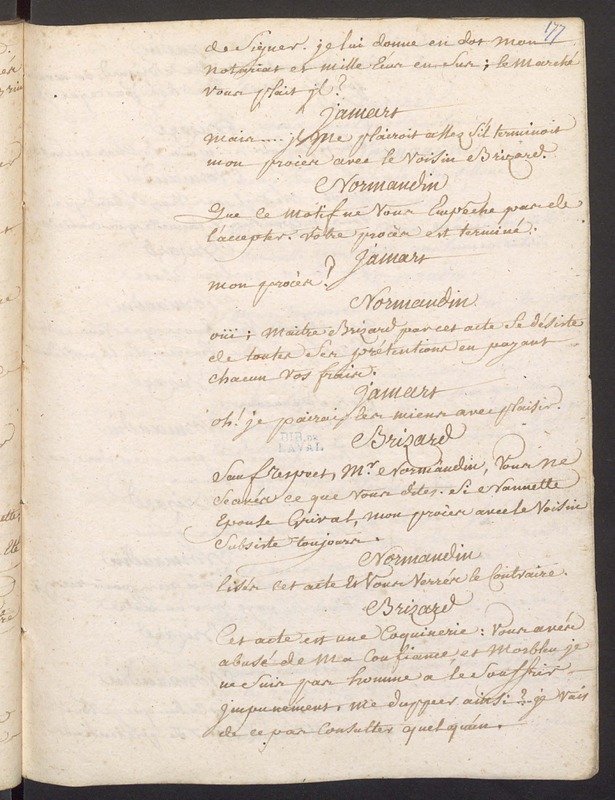 177
de Signer. je lui donne en dot mon
notariat et mille Ecus en Sus; le marché
vous plait jl?
jamart
mais.... jl me plairoit assez S'il terminoit
mon procès avec le Voisin Brizard.
Normandin
Que ce motif ne vous Empêche pas de
l'accepter. votre procès est terminé.
jamart
mon procès?
Normandin
oüi; maitre Brizard par cet acte se désiste
de toutes ses prétentions en payant
chacun vos frais.
jamart
oh! je pairai les miens avec plaisir.
BIB. DE
LAVAL
Brizard
Sauf respect, Mr. Normandin, vous ne
Scavés ce que vous dites. Si Nannette
Epouse Grival, mon procès avec le Voisin
Subsiste toujours.
Normandin
lisés cet acte et Vous Verrés le Contraire.
Brizard
Cet acte est une Coquinerie: vous avés
abusé de Ma Confiance et Morbleu je
ne Suis pas homme a le Souffrir
jmpunement. me dupper ainsi?... je Vais
de ce pas Consulter quelqu'un.